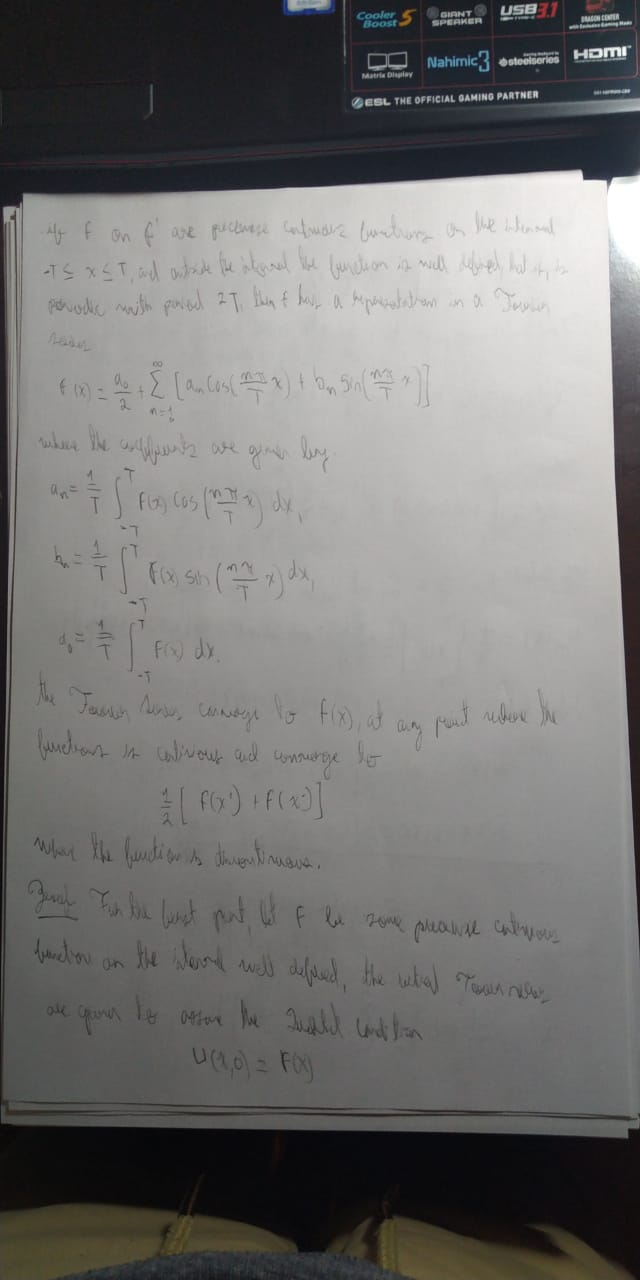 Cooler Boost 5
GIANT SPEAKER
USB 3.1
DRAGON CENTER
Matrix Display
Nahimic 3
steelseries
HDMI
ESL THE OFFICIAL GAMING PARTNER
if f on f' are piecewise continuous functions on the interval
-T ≤ x ≤ T, and outside the interval the function is well defined, that is, is
periodic with period 2T, then f has a representation in a Fourier
series
f(x) = a₀/2 + ∑_{n=1}^{∞} [aₙ cos(nπ/T x) + bₙ sin(nπ/T x)]
where the coefficients are given by.
aₙ = 1/T ∫_{-T}^{T} F(x) cos(nπ/T x) dx,
bₙ = 1/T ∫_{-T}^{T} F(x) sin(nπ/T x) dx,
a₀ = 1/T ∫_{-T}^{T} F(x) dx.
the Fourier series converge to f(x), at any point where the
functions is continous and converge to
1/2 [F(x⁺) + F(x⁻)]
where the function is discontinuous.
For the first part, let F be some piecewise continuous
function on the interval well defined, the Fourier series
are given to assume the condition
U(x,0) = F(x)